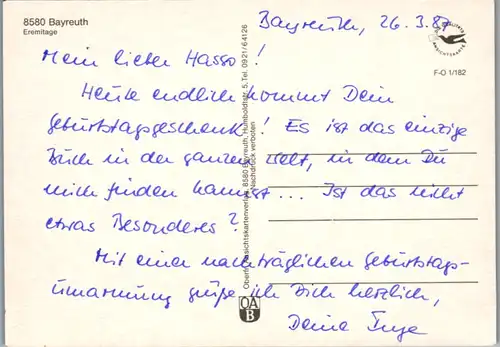 8580 Bayreuth
Eremitage
Bayreuth, 26.3.87
F-O 1/182
Mein lieber Hasso!
Heute endlich kommt Dein
Geburtstagsgeschenk! Es ist das einzige
Buch in der ganzen Welt, in dem Du
mich finden kannst... Ist das nicht
etwas Besonderes?
Mit einer nachträglichen Geburtstags-
umarmung grüße ich Dich herzlich,
Deine Inge
Oberfr. Ansichtskartenverlag, 8580 Bayreuth, Humboldtstr. 5, Tel. 0921/64126
Nachdruck verboten
OA
B